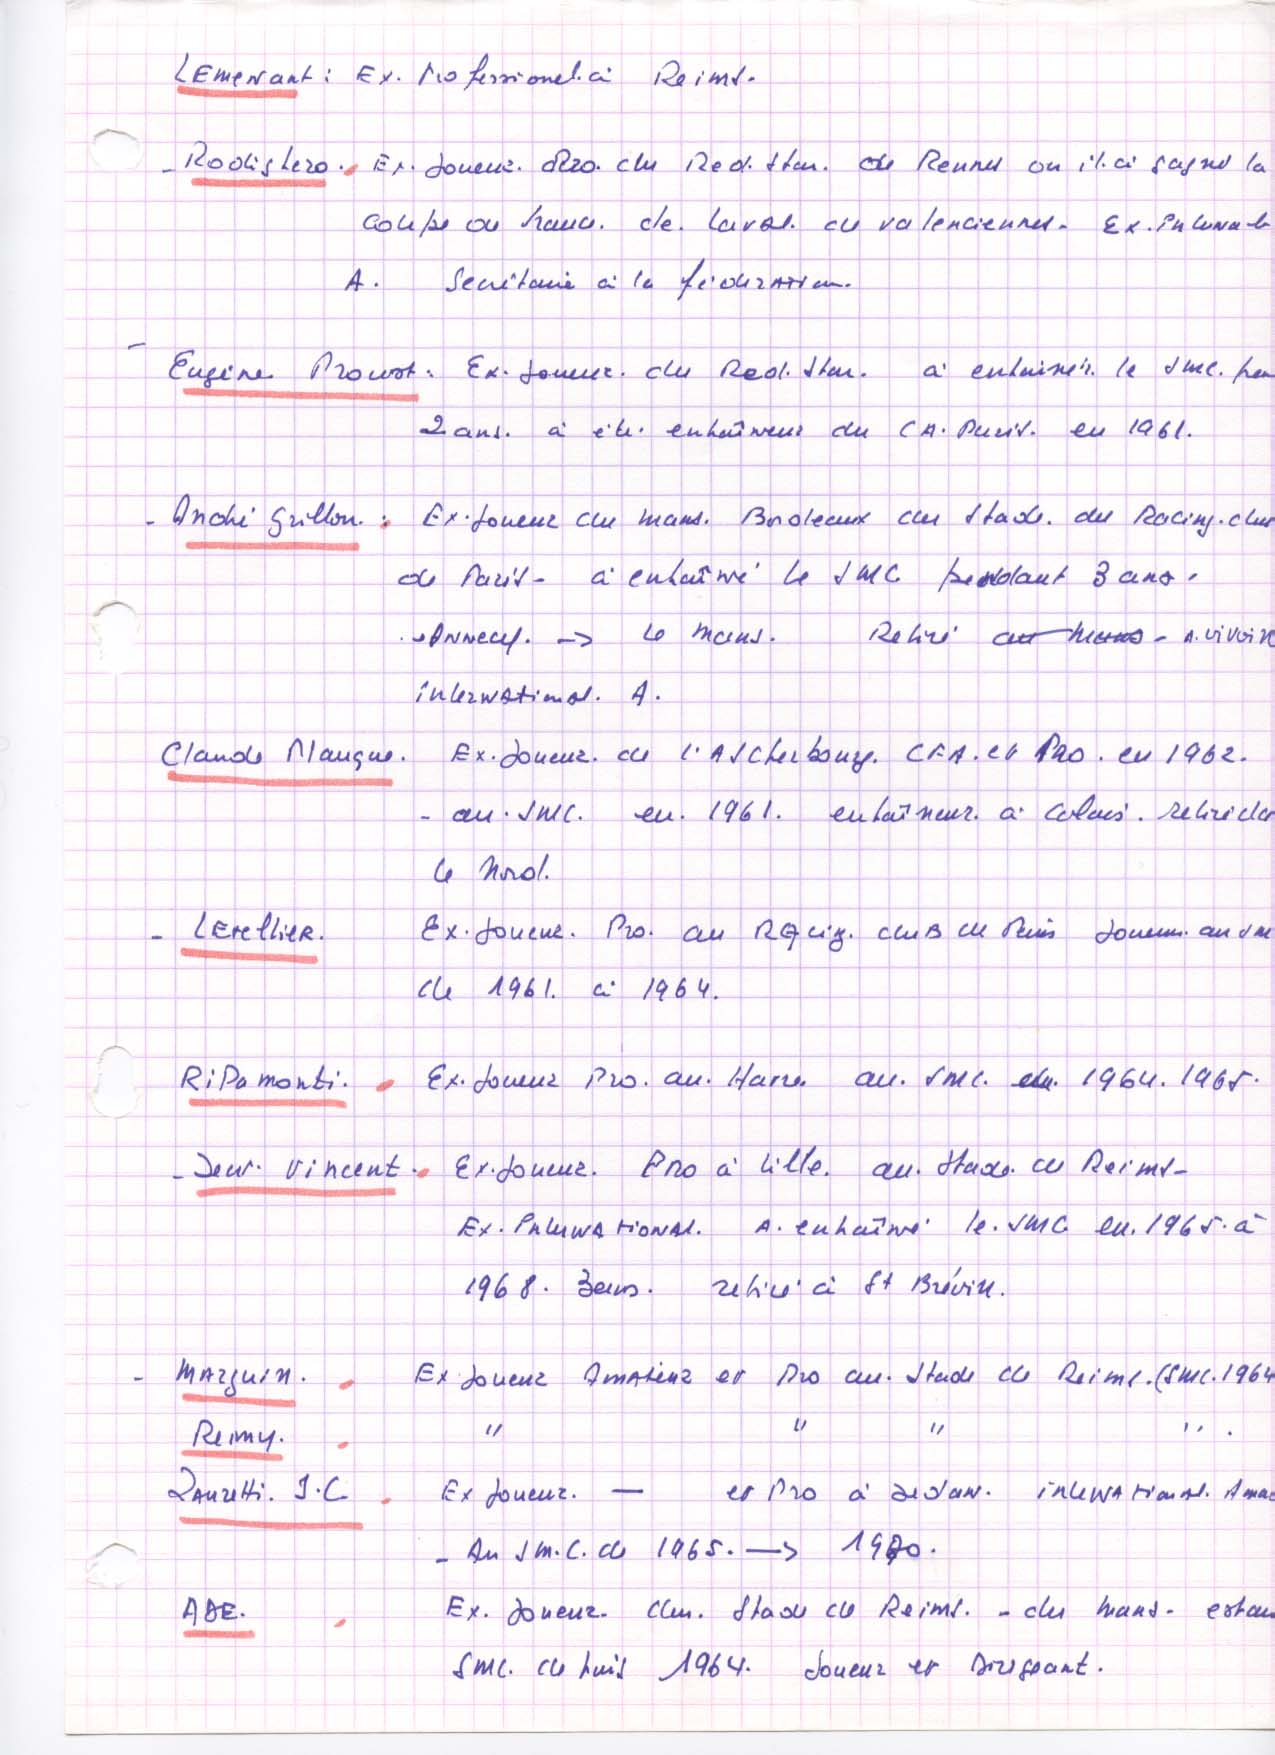 LEmenant : Ex. Professionel à Reims.
- Rodighero. Ex. Joueur Pro. du Red. Star. de Rennes ou il a gagné la
Coupe de France. de Laval. de Valenciennes. Ex. Internat
A. Secrétaire à la fédération.
- Eugène Prouvost. Ex. Joueur. du Red. Star. a entainér. le SMC.
2 ans. a été. entaîneur du CA. Paris. en 1961.
- André Grillon. : Ex. Joueur du mans. Bordeaux du Stade. du Racing. club
de Paris - a entaîné le SMC pendant 3 ans.
Annecy. -> Le Mans. Retiré au Mans - A. Vivoin
international. A.
Claude Maugne. Ex. Joueur. de l'AS Cherbourg. CFA. et Pro. en 1962.
- au. SMC. en. 1961. entaîneur. a Calais. retiré da
le Nord.
- LEtellier. Ex. Joueur. Pro. au Racing. cluB de Paris Joueur. au SM
de 1961. à 1964.
RiPamonti. Ex. Joueur Pro. au. Havre. au. SMC. en. 1964. 1965.
- Jean. Vincent. Ex. Joueur. Pro à Lille. au. Stade. de Reims -
Ex. International. A. entaîné le. SMC en. 1965. à
1968. 3 ans. retiré à St Brévin.
- Marguin. Ex Joueur Amateur et Pro au. Stade de Reims. (SMC. 1964
Remy. " " " " .
Zanzetti. J.C. Ex Joueur. — et Pro à Sedan. international. Ama
- Au SM.C. de 1965. -> 1970.
ABE. Ex. Joueur. du. Stade de Reims. - du Mans - est au
SMC. depuis 1964. Joueur et Dirigeant.